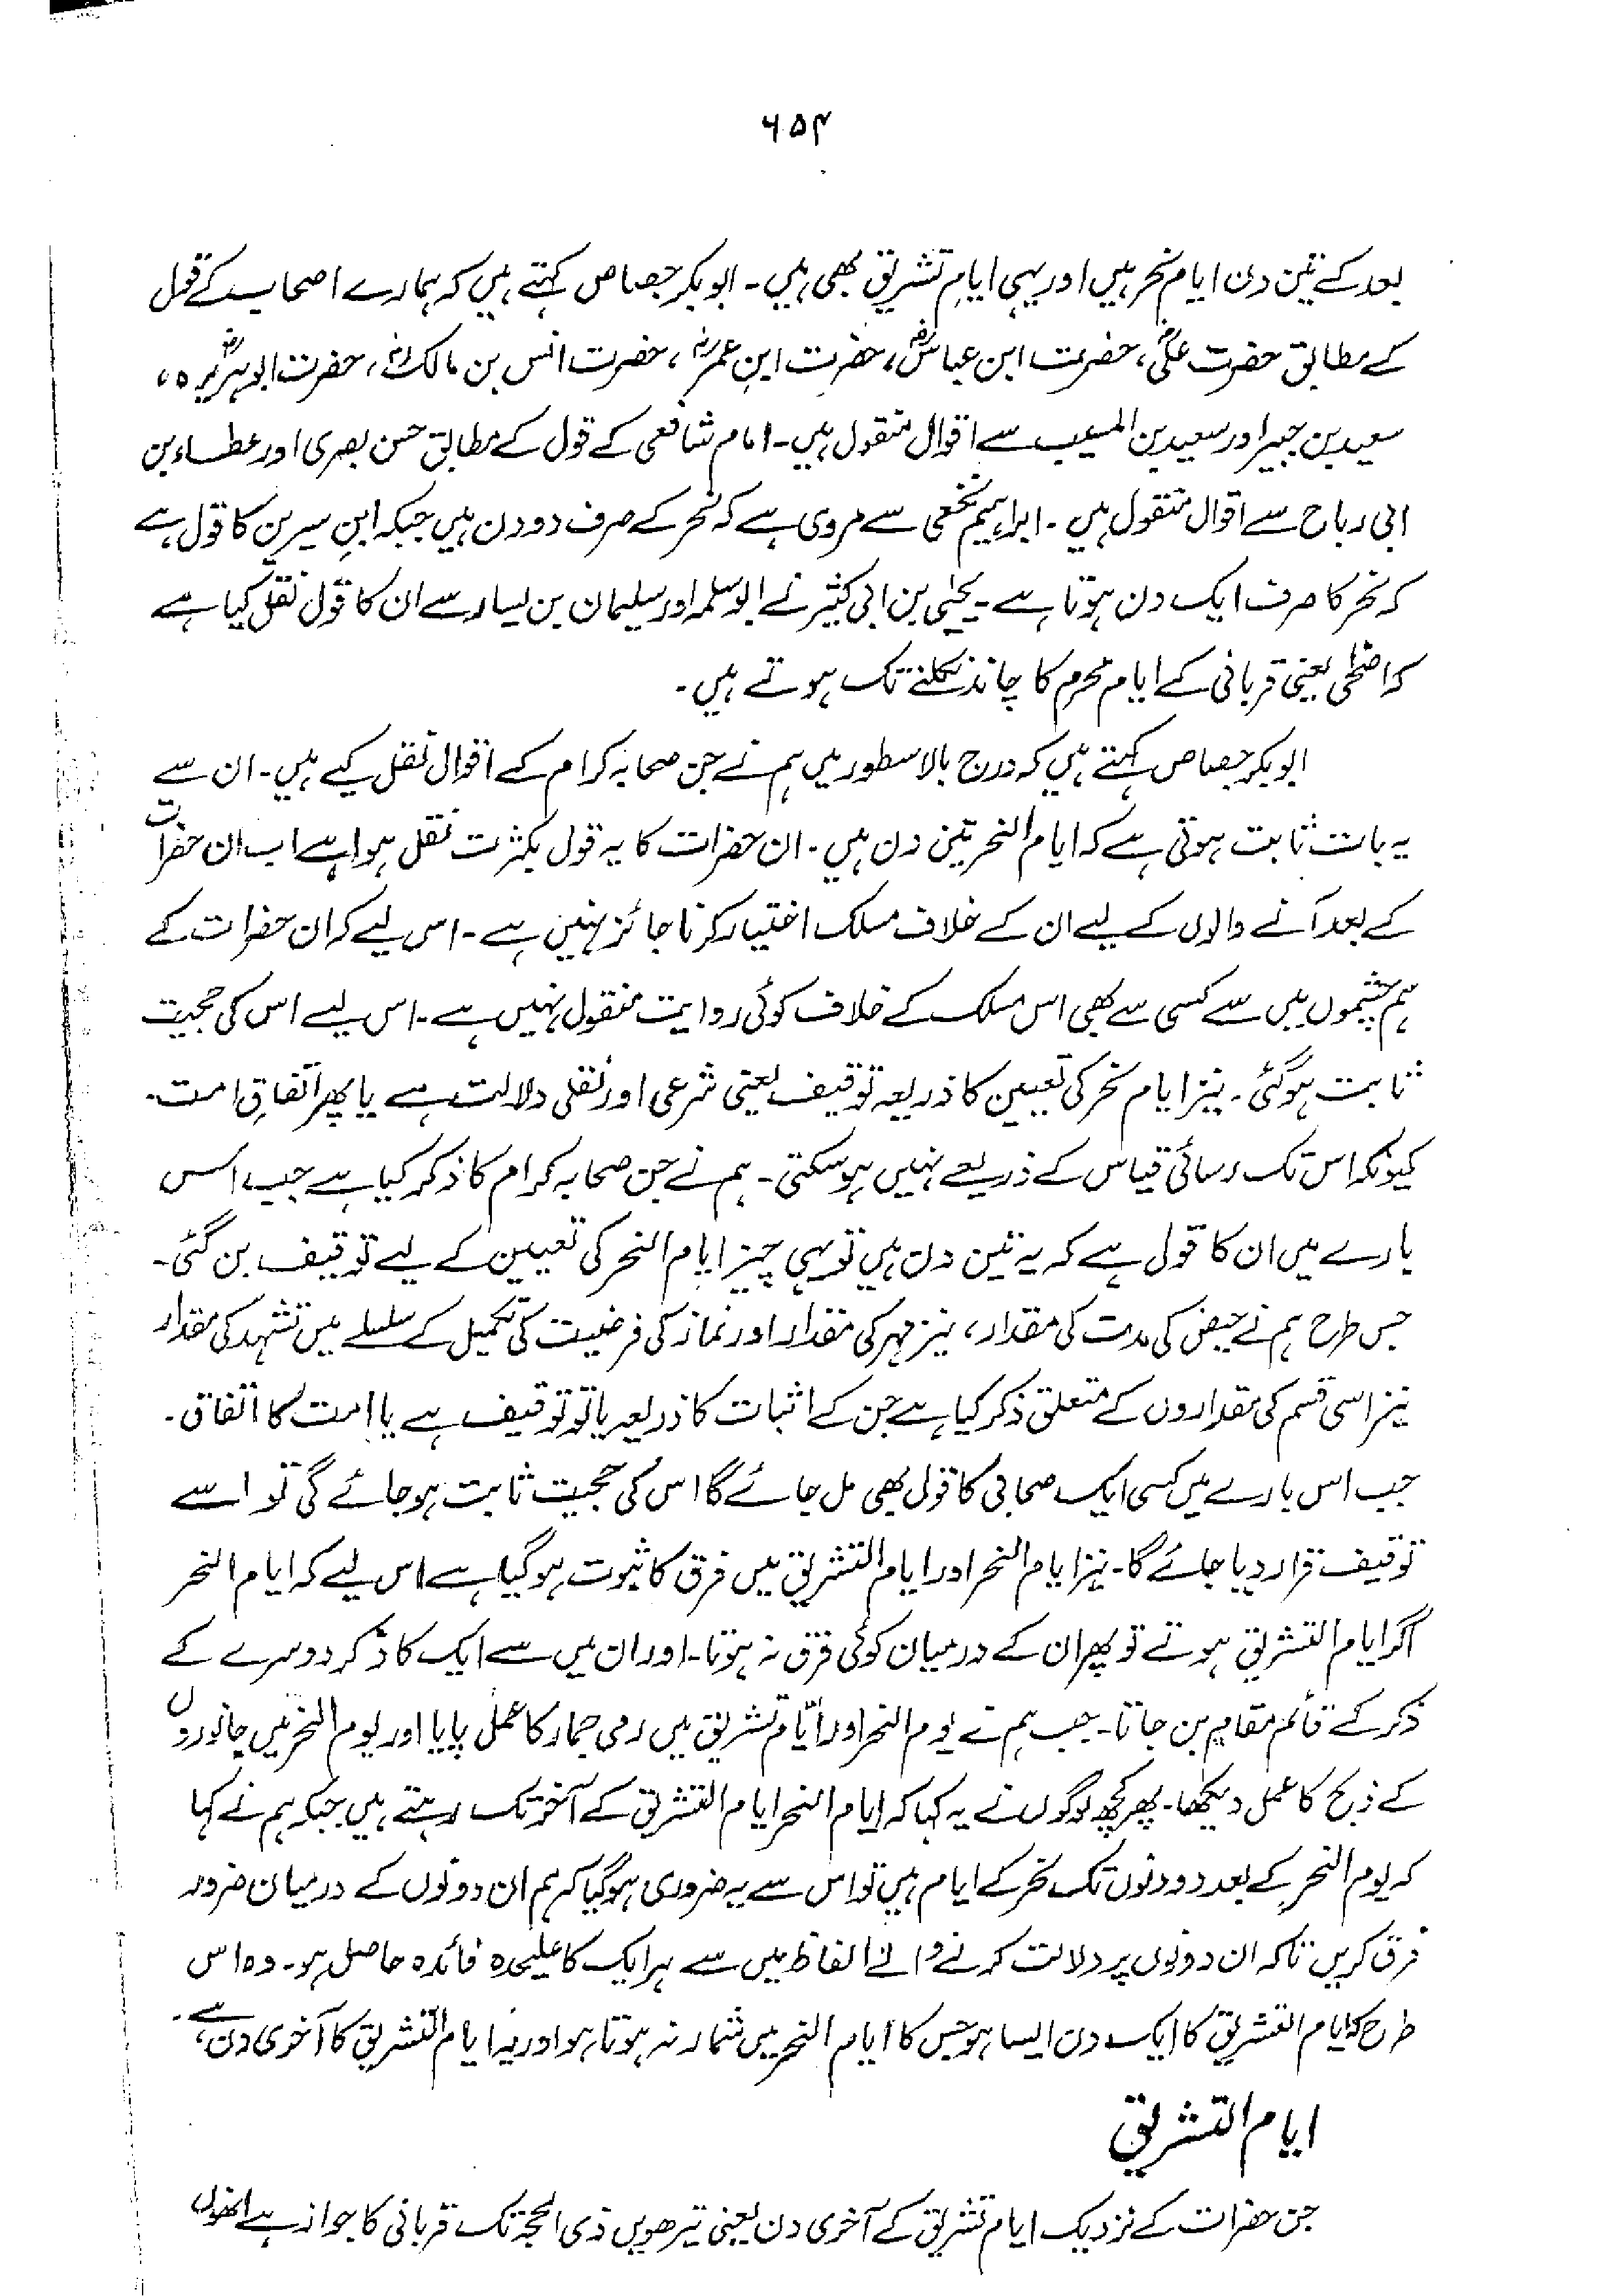 ۶۵۴
بعد کے تین دن ایام نحر ہیں اور یہی ایامِ تشریق بھی ہیں۔ ابو بکر جصاص کہتے ہیں کہ ہمارے اصحاب کے قول
کے مطابق حضرت علیؓ، حضرت ابن عباسؓ، حضرت ابنِ عمرؓ، حضرت انس بن مالکؓ، حضرت ابو ہریرہؓ،
سعید بن جبیر اور سعید بن المسیب سے اقوال منقول ہیں۔ امام شافعی کے قول کے مطابق حسن بصری اور عطاء بن
ابی رباح سے اقوال منقول ہیں۔ ابراہیم نخعی سے مروی ہے کہ نحر کے صرف دو دن ہیں جبکہ ابنِ سیرین کا قول ہے
کہ نحر کا صرف ایک دن ہوتا ہے۔ یحییٰ بن ابی کثیر نے ابو سلمہ اور سلیمان بن یسار سے ان کا قول نقل کیا ہے
کہ اضحیٰ یعنی قربانی کے ایام محرم کا چاند نکلنے تک ہوتے ہیں۔
ابو بکر جصاص کہتے ہیں کہ درج بالا سطور میں ہم نے جن صحابہ کرام کے اقوال نقل کیے ہیں۔ ان سے
یہ بات ثابت ہوتی ہے کہ ایام النحر تین دن ہیں۔ ان حضرات کا یہ قول بکثرت نقل ہوا ہے اب ان حضرات
کے بعد آنے والوں کے لیے ان کے خلاف مسلک اختیار کرنا جائز نہیں ہے۔ اس لیے کہ ان حضرات کے
ہم چشموں میں سے کسی سے بھی اس مسلک کے خلاف کوئی روایت منقول نہیں ہے۔ اس لیے اس کی حجیت
ثابت ہوگئی۔ نیز ایام نحر کی تعیین کا ذریعہ توقیف یعنی شرعی اور نقلی دلالت ہے یا پھر اتفاقِ امت۔
کیونکہ اس تک رسائی قیاس کے ذریعے نہیں ہوسکتی۔ ہم نے جن صحابہ کرام کا ذکر کیا ہے جب اس
بارے میں ان کا قول ہے کہ یہ تین دن ہیں تو یہی چیز ایام النحر کی تعیین کے لیے توقیف بن گئی۔
جس طرح ہم نے حیض کی مدت کی مقدار، نیز مہر کی مقدار اور نماز کی فرضیت کی تکمیل کے سلسلے میں تشہد کی مقدار
نیز اسی قسم کی مقداروں کے متعلق ذکر کیا ہے جن کے اثبات کا ذریعہ یا تو توقیف ہے یا امت کا اتفاق۔
جب اس بارے میں کسی ایک صحابی کا قول بھی مل جائے گا اس کی حجیت ثابت ہوجائے گی تو اسے
توقیف قرار دیا جائے گا۔ نیز ایام النحر اور ایام التشریق میں فرق کا ثبوت ہوگیا ہے اس لیے کہ ایام النحر
اگر ایام التشریق ہوتے تو پھر ان کے درمیان کوئی فرق نہ ہوتا۔ اور ان میں سے ایک کا ذکر دوسرے کے
ذکر کے قائم مقام بن جاتا۔ جب ہم نے یوم النحر اور ایّام تشریق میں رمی جمار کا عمل پایا اور یوم النحر میں جانوروں
کے ذبح کا عمل دیکھا۔ پھر کچھ لوگوں نے یہ کہا کہ ایام النحر ایام التشریق کے آخر تک رہتے ہیں جبکہ ہم نے کہا
کہ یوم النحر کے بعد دو دنوں تک نحر کے ایام ہیں تو اس سے یہ ضروری ہوگیا کہ ہم ان دونوں کے درمیان ضرور
فرق کریں تاکہ ان دونوں پر دلالت کرنے والے الفاظ میں سے ہر ایک کا علیحدہ فائدہ حاصل ہو۔ وہ اس
طرح کہ ایام التشریق کا ایک دن ایسا ہو جس کا ایام النحر میں شمار نہ ہوتا ہو اور یہ ایام التشریق کا آخری دن ہے۔
ایام التشریق
جن حضرات کے نزدیک ایام تشریق کے آخری دن یعنی تیرھویں ذی الحجۃ تک قربانی کا جواز ہے انھوں